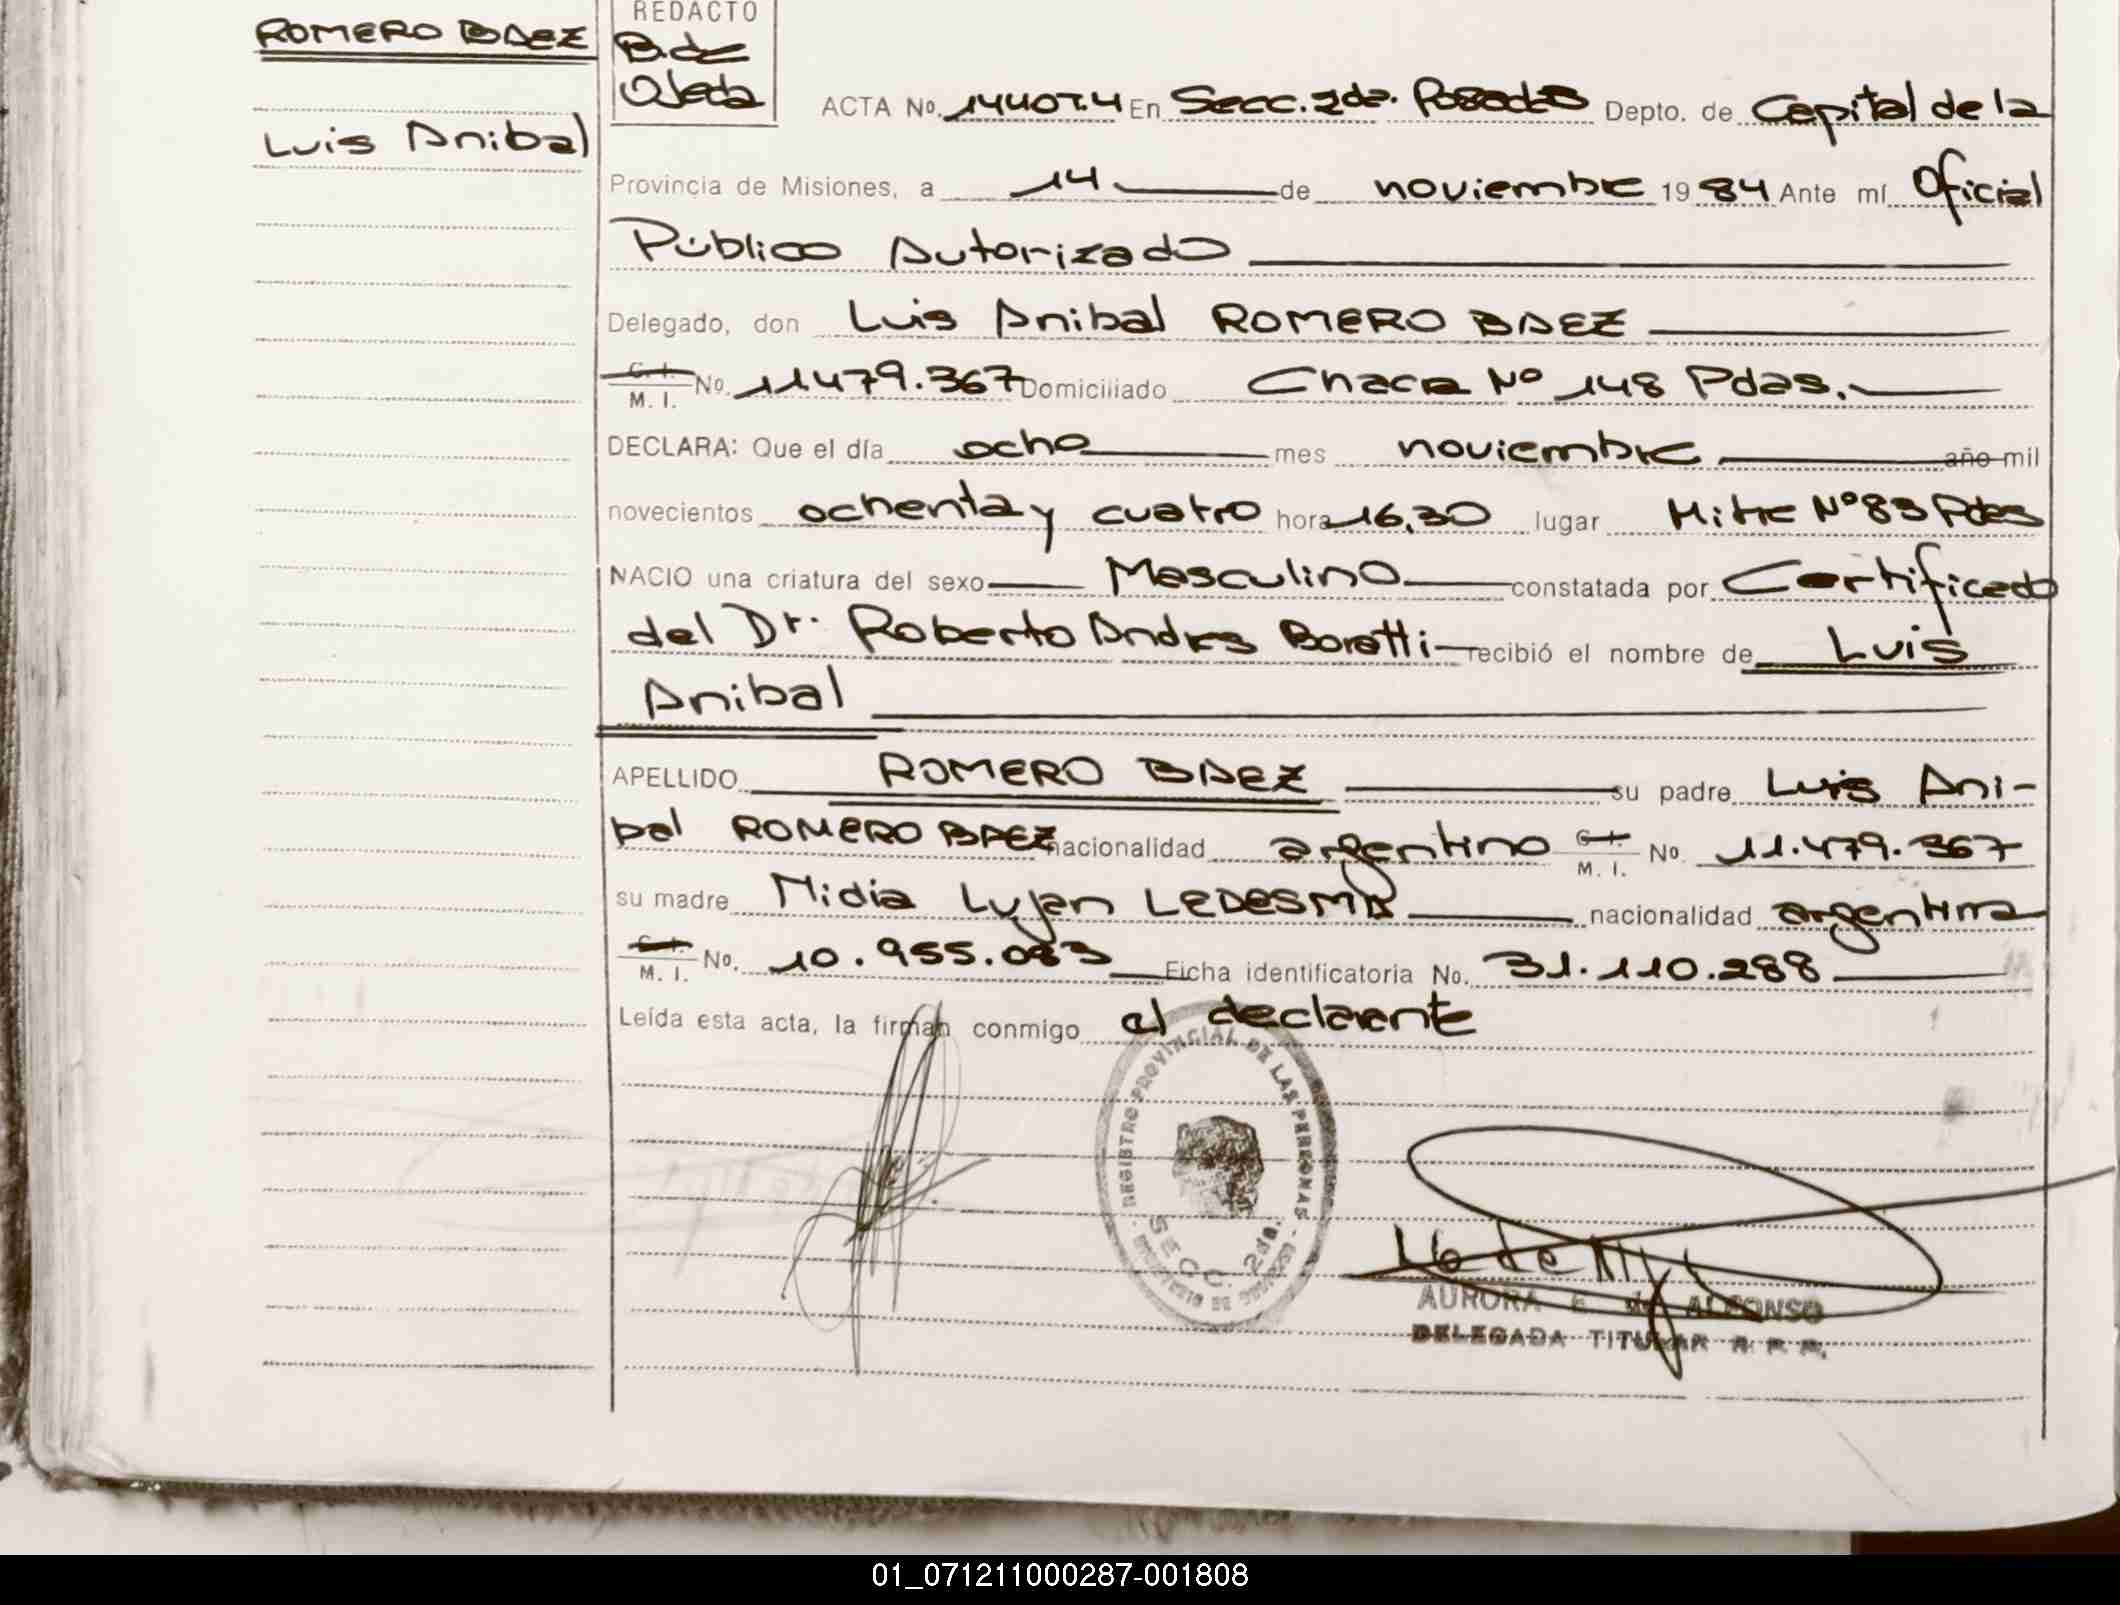 ROMERO BAEZ
Luis Anibal
REDACTO
B. de
Ojeda
ACTA No. 1440T.4 En Secc. 2da. Posadas Depto. de Capital de la
Provincia de Misiones, a 14 de noviembre 1984 Ante mí Oficial
Público Autorizado
Delegado, don Luis Anibal ROMERO BAEZ
C. I. M. I. No. 11.479.367 Domiciliado Chacra Nº 148 Pdas.
DECLARA: Que el día ocho mes noviembre año mil
novecientos ochenta y cuatro hora 16,30 lugar Mitre Nº 83 Pdas
NACIO una criatura del sexo Masculino constatada por Certificado
del Dr. Roberto Andres Boratti recibió el nombre de Luis
Anibal
APELLIDO ROMERO BAEZ su padre Luis Ani-
bal ROMERO BAEZ nacionalidad argentino C. I. M. I. No. 11.479.367
su madre Nidia Lujan LEDESMA nacionalidad argentina
C. I. M. I. No. 10.955.083 Ficha identificatoria No. 31.110.288
Leída esta acta, la firman conmigo el declarante
REGISTRO PROVINCIAL DE LAS PERSONAS
SECC. 2da.
MINISTERIO DE GOBIERNO
AURORA E. de ALFONSO
DELEGADA TITULAR R. P. P.
01_071211000287-001808